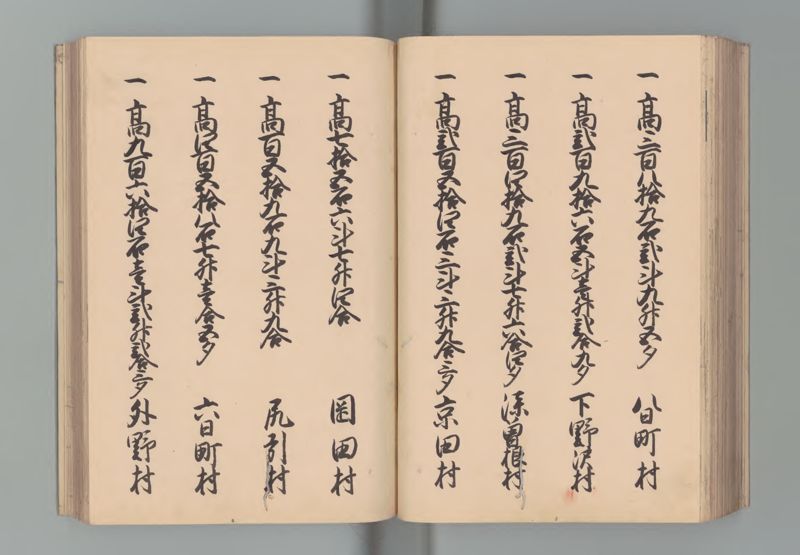 一 高三百八拾九石弐斗九升五夕 八日町村
一 高弐百九拾六石五斗壱升弐合九夕 下野沢村
一 高三百四拾九石弐斗七升六合四夕 深曽根村
一 高弐百五拾四石三斗三升九合三夕 京田村
一 高七拾五石六斗七升四合 岡田村
一 高百五拾九石九斗三升九合 尻引村
一 高四百五拾八石七升壱合五夕 六日町村
一 高九百六拾四石壱斗弐升弐合三夕 外野村